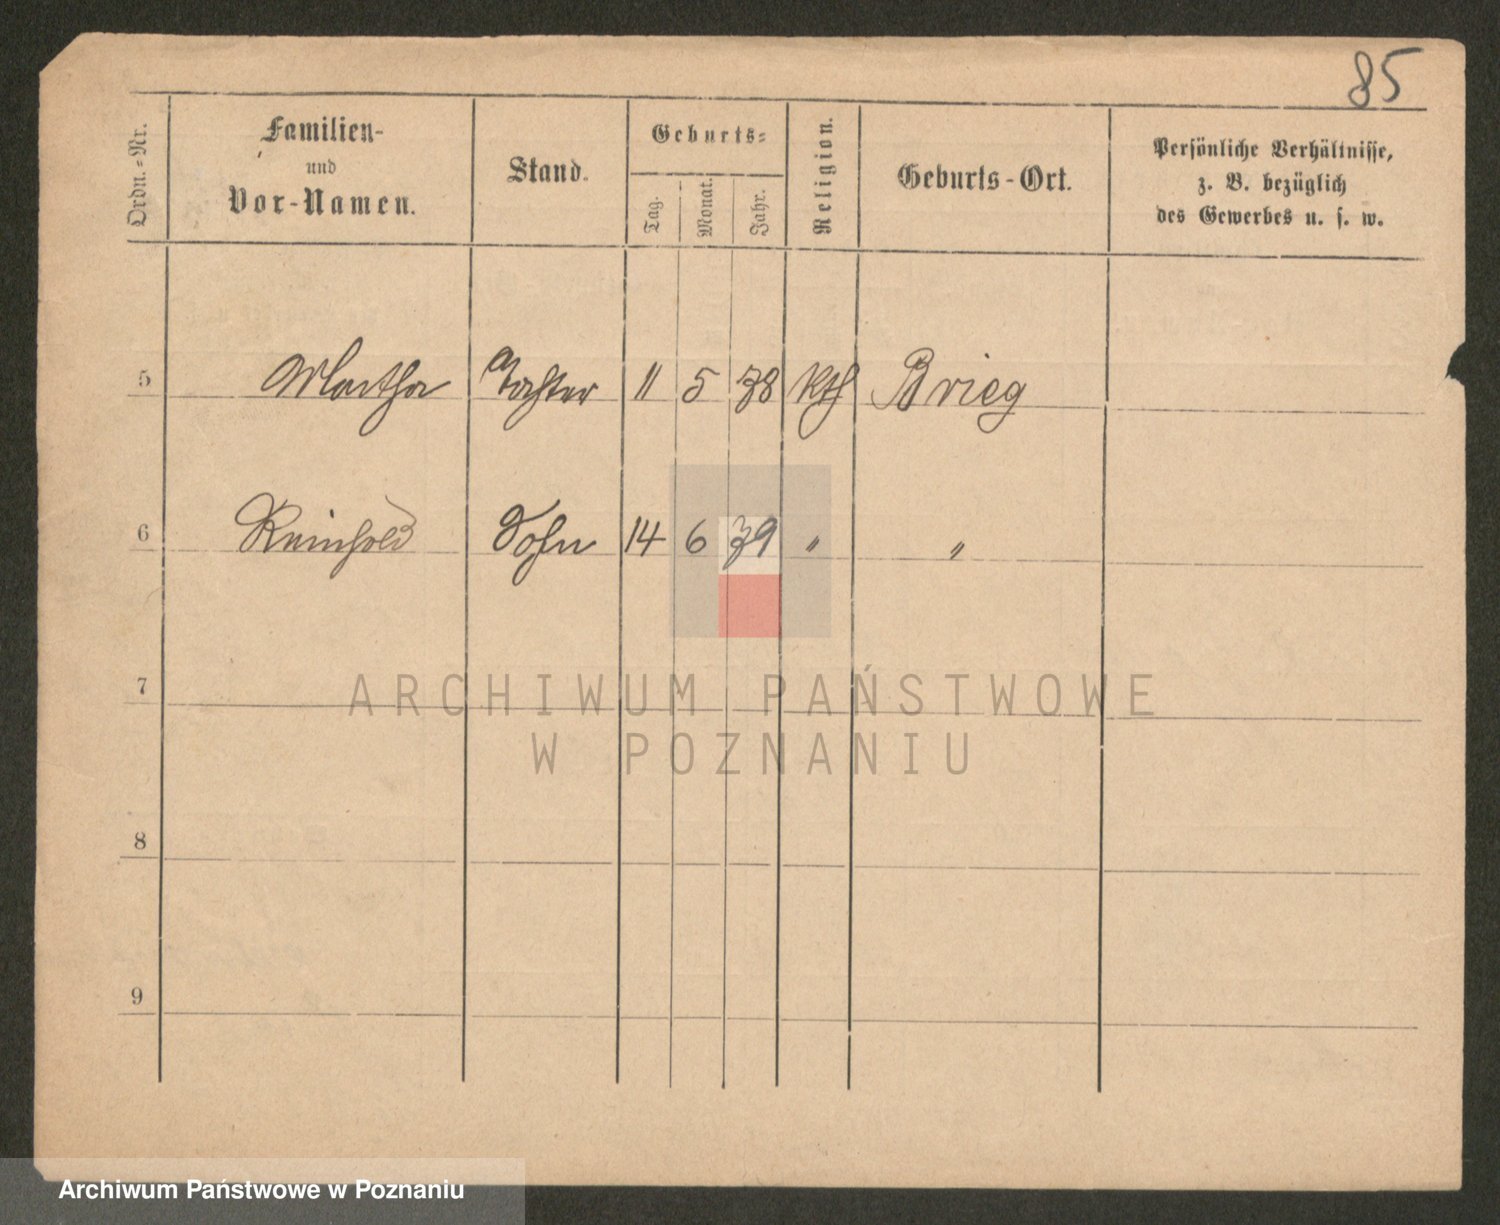 85
Ordn.-Nr. Familien- und Vor-Namen. Stand. Geburts- Tag. Monat. Jahr. Religion. Geburts-Ort. Persönliche Verhältnisse, z. B. bezüglich des Gewerbes u. s. w.
5 Martha Tochter 11 5 78 Kth Brieg
6 Reinhold Sohn 14 6 79 " "
7
ARCHIWUM PAŃSTWOWE
W POZNANIU
8
9
Archiwum Państwowe w Poznaniu